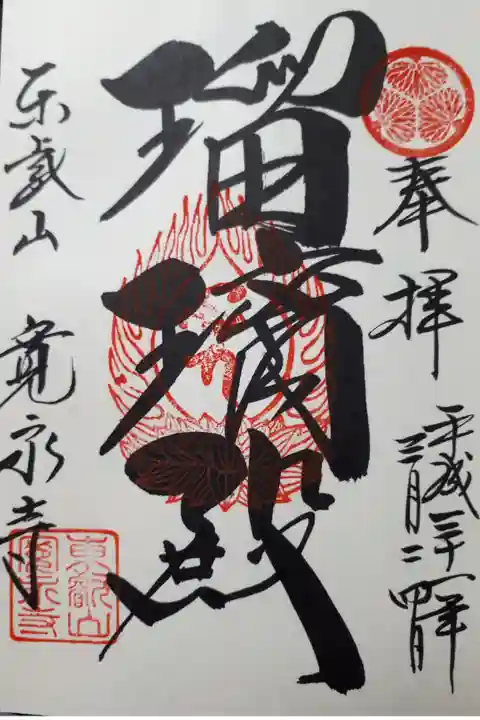 奉拝
平成三十一年
三月二四日
瑠璃殿
东叡山 寛永寺
東叡山
寛永寺